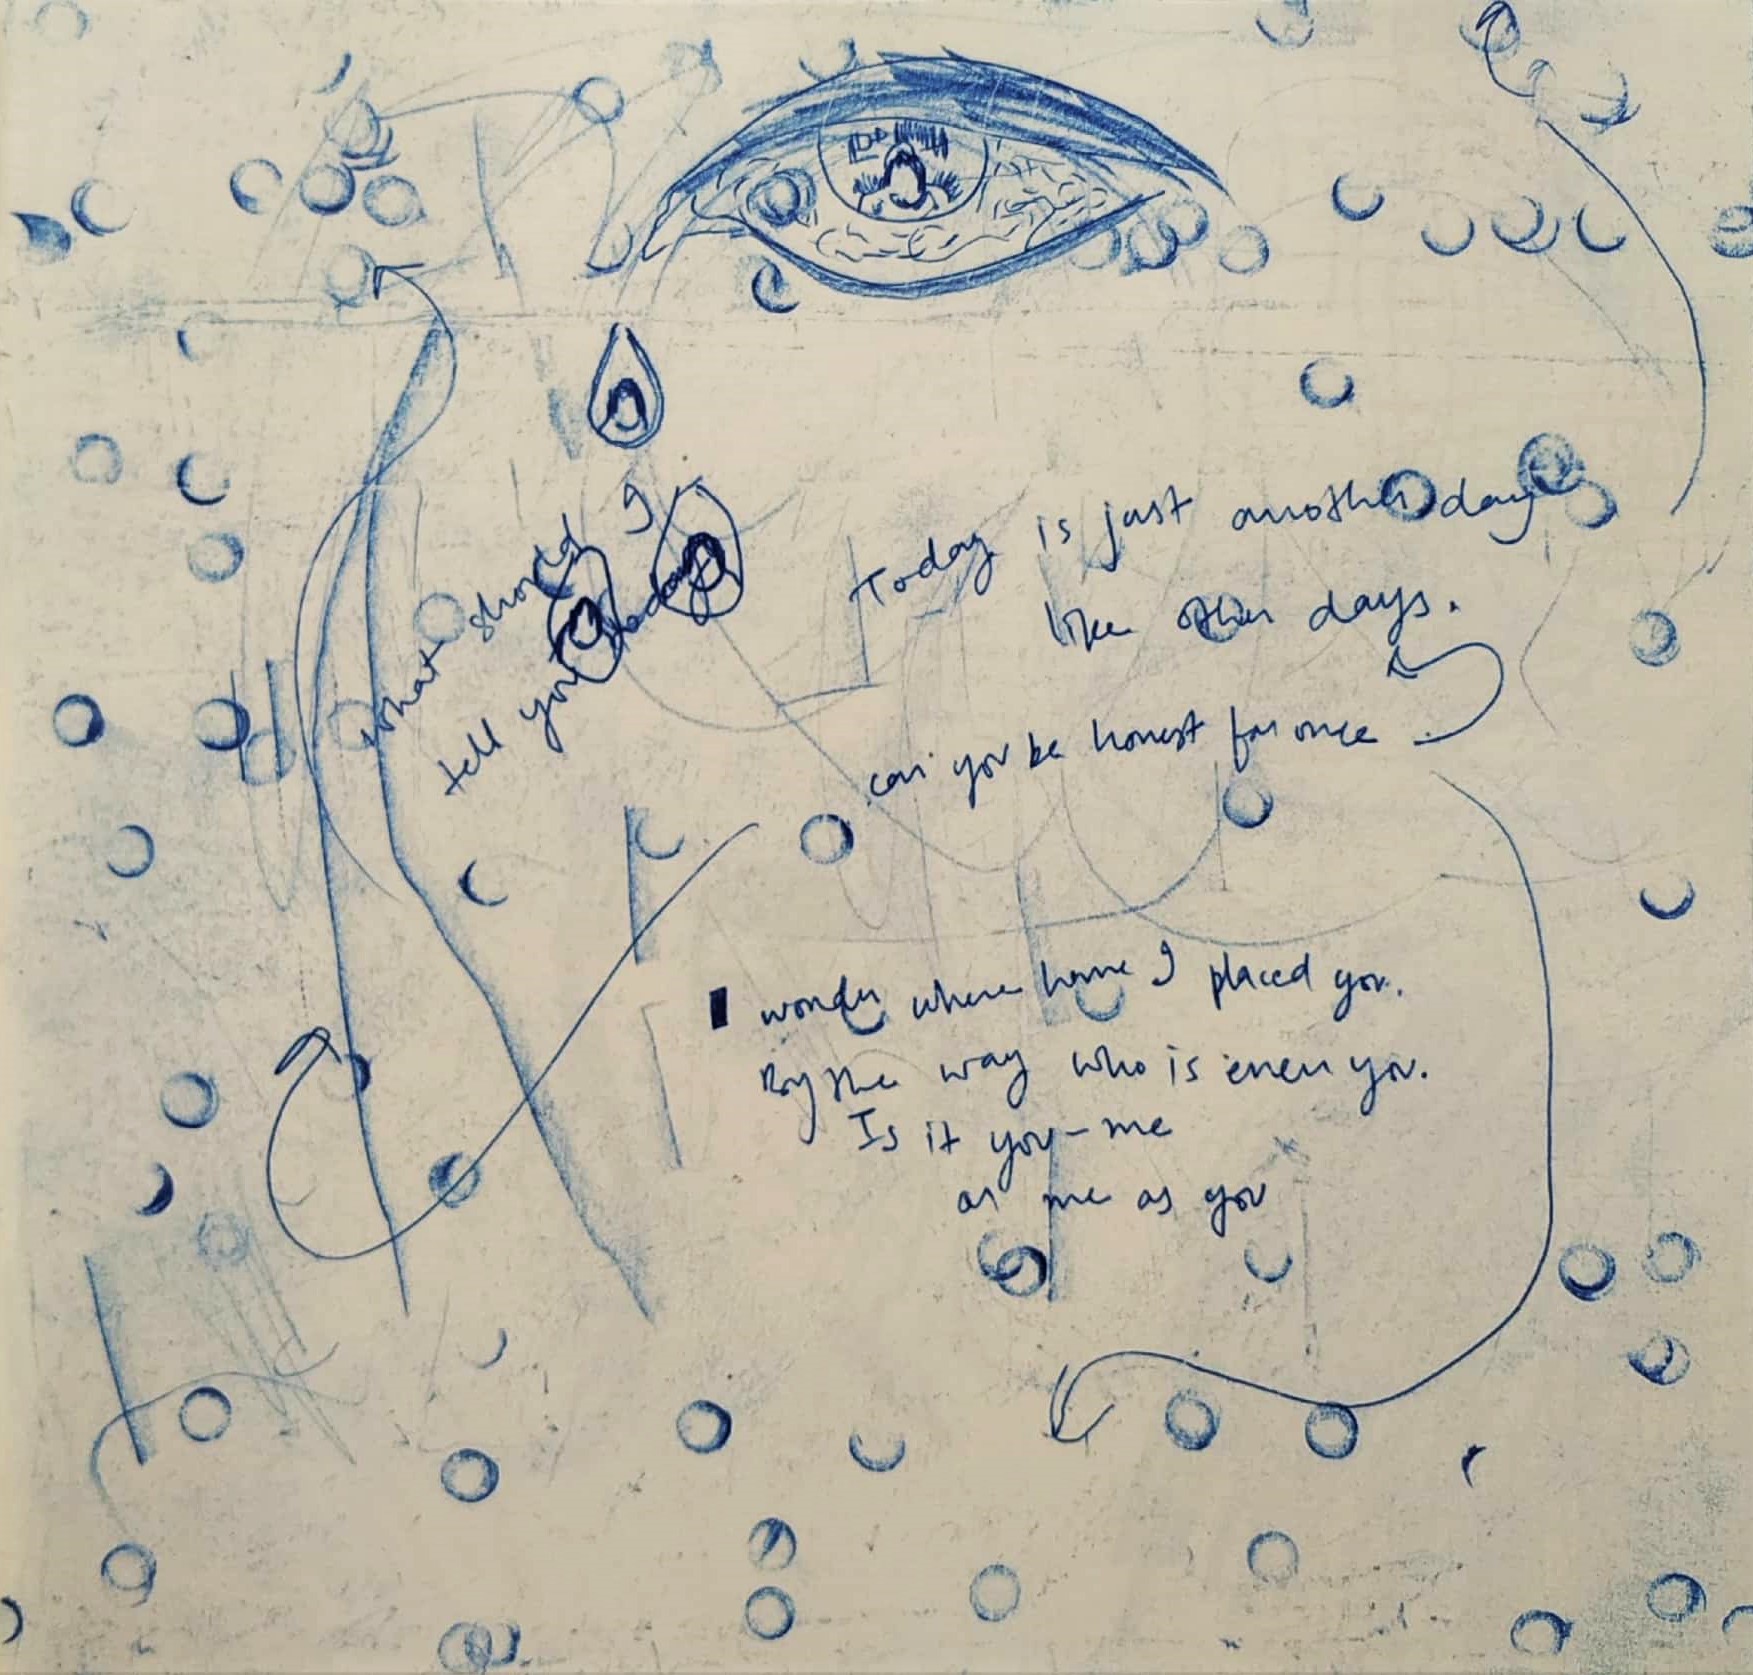 what should I
tell you today
Today is just another day
like other days.
can you be honest for once
I wonder where have I placed you.
By the way who is even you.
Is it you - me
or me as you